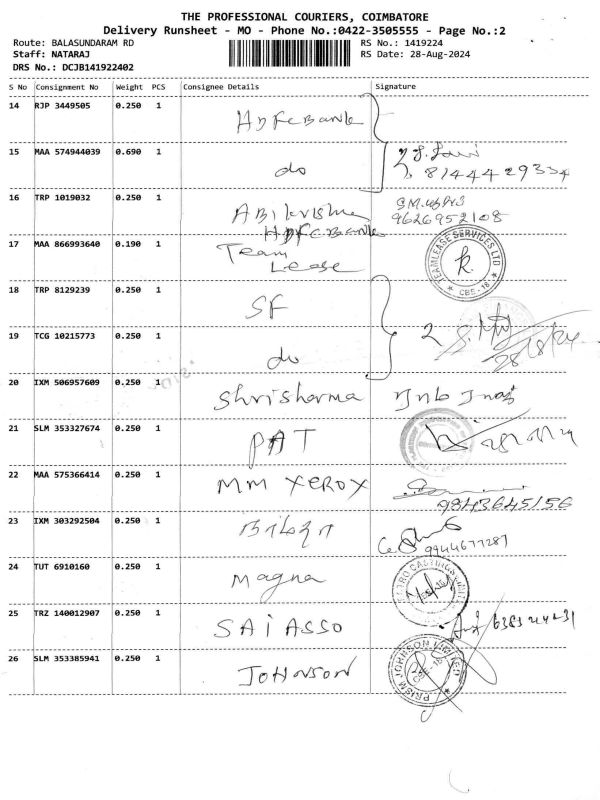 THE PROFESSIONAL COURIERS, COIMBATORE
Delivery Runsheet - MO - Phone No.:0422-3505555 - Page No.:2
Route: BALASUNDARAM RD
Staff: NATARAJ
DRS No.: DCJB141922402
RS No.: 1419224
RS Date: 28-Aug-2024
S No Consignment No Weight PCS Consignee Details Signature
14 RJP 3449505 0.250 1 HDFC Bank
15 MAA 574944039 0.690 1 do 8144429334
16 TRP 1019032 0.250 1 ABikrishna 9626952108
HDFC Bank
17 MAA 866993640 0.190 1 Team Lease TEAMLEASE SERVICES LTD CBE-18
18 TRP 8129239 0.250 1 SF
19 TCG 10215773 0.250 1 do 2 28/8/24
20 IXM 506957609 0.250 1 Shrisharma
21 SLM 353327674 0.250 1 PAT
22 MAA 575366414 0.250 1 MM XEROX 9843645156
23 IXM 303292504 0.250 1 9944677287
24 TUT 6910160 0.250 1 Magna
25 TRZ 140012907 0.250 1 SAI ASSO
26 SLM 353385941 0.250 1 JOHNSON PRISM JOHNSON LIMITED CBE-18